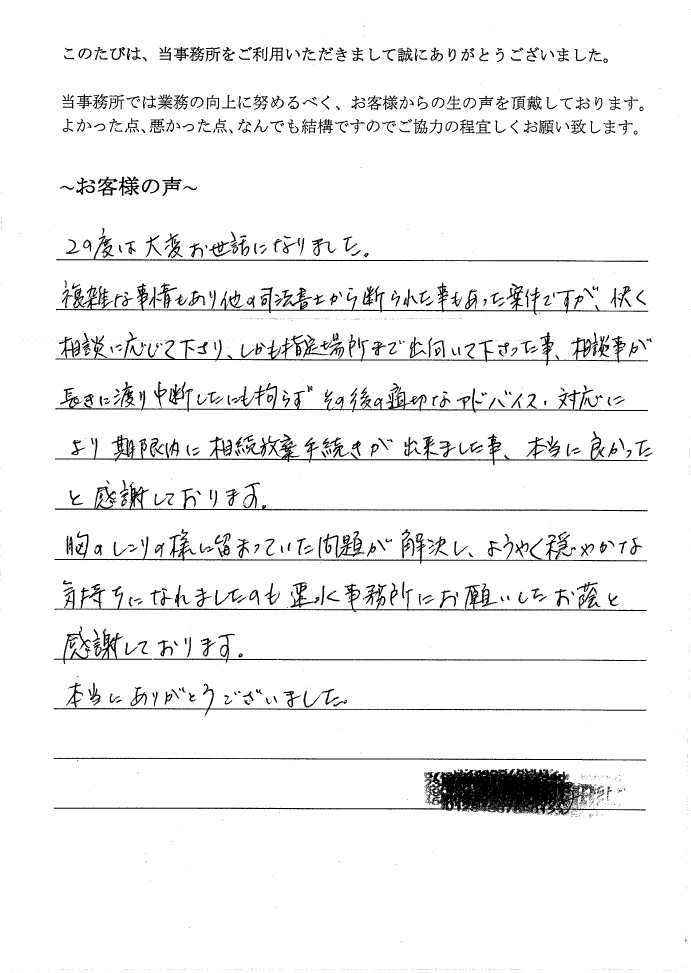 このたびは、当事務所をご利用いただきまして誠にありがとうございました。
当事務所では業務の向上に努めるべく、お客様からの生の声を頂戴しております。
よかった点、悪かった点、なんでも結構ですのでご協力の程宜しくお願い致します。
~お客様の声~
この度は大変お世話になりました。
複雑な事情もあり他の司法書士から断られた事もあった案件ですが、快く
相談に応じて下さり、しかも指定場所まで出向いて下さった事、相談事が
長きに渡り中断したにも拘らずその後の適切なアドバイス・対応に
より期限内に相続放棄手続きが出来ました事、本当に良かった
と感謝しております。
胸のしこりの様に留まっていた問題が解決し、ようやく穏やかな
気持ちになれましたのも 事務所にお願いしたお蔭と
感謝しております。
本当にありがとうございました。